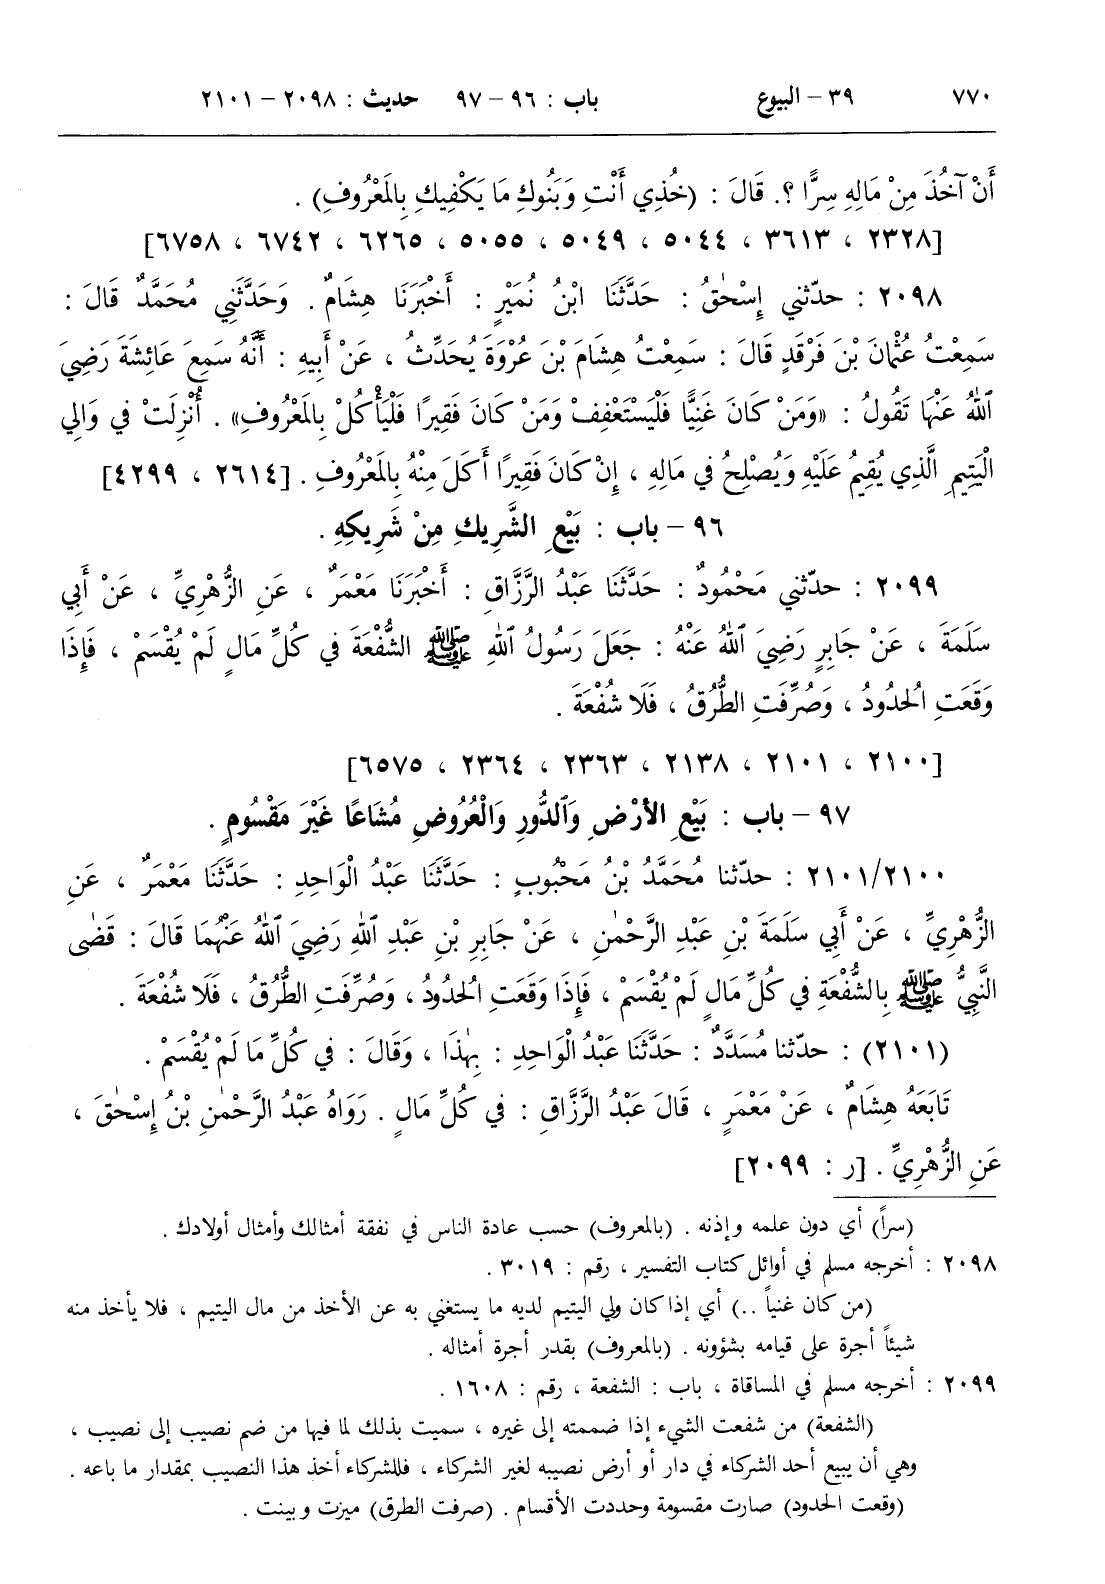 ٧٧٠ ٣٩ – البيوع باب : ٩٦ – ٩٧ حديث : ٢٠٩٨ – ٢١٠١
أَنْ آخُذَ مِنْ مَالِهِ سِرًّا ؟. قَالَ : (خُذِي أَنْتِ وَبَنُوكِ مَا يَكْفِيكِ بِالمَعْرُوفِ) .
[٢٣٢٨ ، ٣٦١٣ ، ٥٠٤٤ ، ٥٠٤٩ ، ٥٠٥٥ ، ٦٢٦٥ ، ٦٧٤٢ ، ٦٧٥٨]
٢٠٩٨ : حدّثني إِسْحٰقُ : حَدَّثَنَا ابْنُ نُمَيْرٍ : أَخْبَرَنَا هِشَامٌ . وَحَدَّثَنِي مُحَمَّدٌ قَالَ :
سَمِعْتُ عُثْمَانَ بْنَ فَرْقَدٍ قَالَ : سَمِعْتُ هِشَامَ بْنَ عُرْوَةَ يُحَدِّثُ ، عَنْ أَبِيهِ : أَنَّهُ سَمِعَ عَائِشَةَ رَضِيَ
اَللهُ عَنْهَا تَقُولُ : «وَمَنْ كَانَ غَنِيًّا فَلْيَسْتَعْفِفْ وَمَنْ كَانَ فَقِيرًا فَلْيَأْكُلْ بِالمَعْرُوفِ» . أُنْزِلَتْ في وَالِي
الْيَتِيمِ الَّذِي يُقِيمُ عَلَيْهِ وَيُصْلِحُ في مَالِهِ ، إِنْ كَانَ فَقِيرًا أَكَلَ مِنْهُ بِالمَعْرُوفِ . [٢٦١٤ ، ٤٢٩٩]
٩٦ – باب : بَيْعِ الشَّرِيكِ مِنْ شَرِيكِهِ .
٢٠٩٩ : حدّثني مَحْمُودٌ : حَدَّثَنَا عَبْدُ الرَّزَّاقِ : أَخْبَرَنَا مَعْمَرٌ ، عَنِ الزُّهْرِيِّ ، عَنْ أَبِي
سَلَمَةَ ، عَنْ جَابِرٍ رَضِيَ اَللهُ عَنْهُ : جَعَلَ رَسُولُ اَللهِ ﷺ الشُّفْعَةَ في كُلِّ مَالٍ لَمْ يُقْسَمْ ، فَإِذَا
وَقَعَتِ الحُدُودُ ، وَصُرِّفَتِ الطُّرُقُ ، فَلَا شُفْعَةَ .
[٢١٠٠ ، ٢١٠١ ، ٢١٣٨ ، ٢٣٦٣ ، ٢٣٦٤ ، ٦٥٧٥]
٩٧ – باب : بَيْعِ الأَرْضِ وَٱلدُّورِ وَالْعُرُوضِ مُشَاعًا غَيْرَ مَقْسُومٍ .
٢١٠١/٢١٠٠ : حدّثنا مُحَمَّدُ بْنُ مَحْبُوبٍ : حَدَّثَنَا عَبْدُ الْوَاحِدِ : حَدَّثَنَا مَعْمَرٌ ، عَنِ
الزُّهْرِيِّ ، عَنْ أَبِي سَلَمَةَ بْنِ عَبْدِ الرَّحْمٰنِ ، عَنْ جَابِرِ بْنِ عَبْدِ اَللهِ رَضِيَ اَللهُ عَنْهُمَا قَالَ : قَضٰى
النَّبِيُّ ﷺ بِالشُّفْعَةِ في كُلِّ مَالٍ لَمْ يُقْسَمْ ، فَإِذَا وَقَعَتِ الحُدُودُ ، وَصُرِّفَتِ الطُّرُقُ ، فَلَا شُفْعَةَ .
(٢١٠١) : حدّثنا مُسَدَّدٌ : حَدَّثَنَا عَبْدُ الْوَاحِدِ : بِهٰذَا ، وَقَالَ : في كُلِّ مَا لَمْ يُقْسَمْ .
تَابَعَهُ هِشَامٌ ، عَنْ مَعْمَرٍ ، قَالَ عَبْدُ الرَّزَّاقِ : في كُلِّ مَالٍ . رَوَاهُ عَبْدُ الرَّحْمٰنِ بْنُ إِسْحٰقَ ،
عَنِ الزُّهْرِيِّ . [ر : ٢٠٩٩]
(سراً) أي دون علمه وإذنه . (بالمعروف) حسب عادة الناس في نفقة أمثالك وأمثال أولادك .
٢٠٩٨ : أخرجه مسلم في أوائل كتاب التفسير ، رقم : ٣٠١٩ .
(من كان غنياً ..) أي إذا كان ولي اليتيم لديه ما يستغني به عن الأخذ من مال اليتيم ، فلا يأخذ منه
شيئاً أجرة على قيامه بشؤونه . (بالمعروف) بقدر أجرة أمثاله .
٢٠٩٩ : أخرجه مسلم في المساقاة ، باب : الشفعة ، رقم : ١٦٠٨ .
(الشفعة) من شفعت الشيء إذا ضممته إلى غيره ، سميت بذلك لما فيها من ضم نصيب إلى نصيب ،
وهي أن يبيع أحد الشركاء في دار أو أرض نصيبه لغير الشركاء ، فللشركاء أخذ هذا النصيب بمقدار ما باعه .
(وقعت الحدود) صارت مقسومة وحددت الأقسام . (صرفت الطرق) ميزت وبينت .